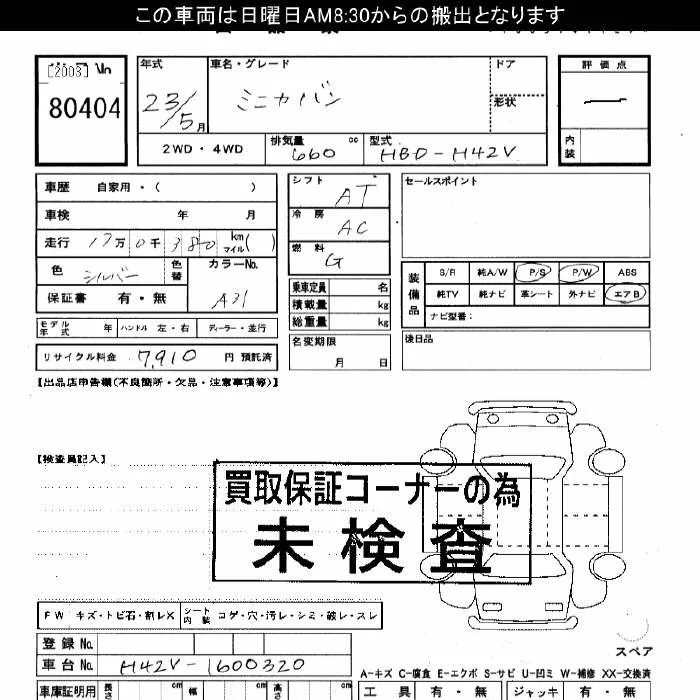 この車両は日曜日AM8:30からの搬出となります
[2003] No
80404
年式
23/5月
車名・グレード
ミニカバン
ドア
形状
評価点
内装
2WD・4WD
排気量
660
cc
型式
HBD-H42V
車歴 自家用・( )
車検 年 月
走行 17万0千380 km マイル( )
色 シルバー
色替
カラーNo.
A31
保証書 有・無
モデル年式 年 ハンドル 左・右 ディーラー・並行
リサイクル料金 7,910 円 預託済
シフト
AT
冷房
AC
燃料
G
乗車定員 名
積載量 kg
総重量 kg
名変期限
月 日
セールスポイント
装備品
S/R 純A/W P/S P/W ABS
純TV 純ナビ 革シート 外ナビ エアB
ナビ型番:
後日品
【出品店申告欄(不良箇所・欠品・注意事項等)】
【検査員記入】
買取保証コーナーの為
未検査
FW キズ・トビ石・割レX
シート内装 コゲ・穴・汚レ・シミ・破レ・スレ
登録No.
車台No. H42V-1600320
スペア
A-キズ C-腐食 E-エクボ S-サビ U-凹ミ W-補修 XX-交換済
車庫証明用 長さ cm 幅 cm 高さ cm
工具 有・無 ジャッキ 有・無